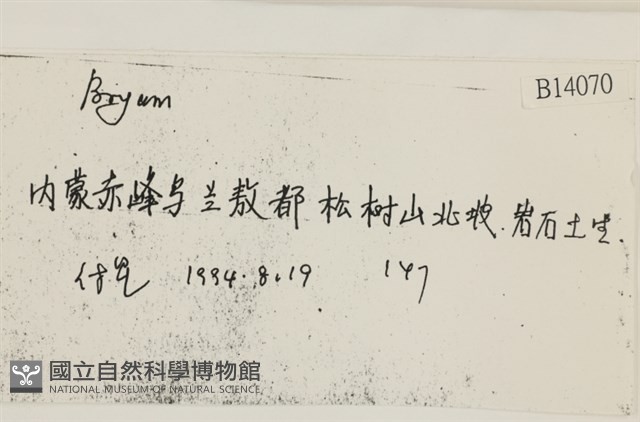 Bryum
B14070
内蒙赤峰乌兰敖都松树山北坡.岩石土生.
1994.8.19 147
國立自然科學博物館
NATIONAL MUSEUM OF NATURAL SCIENCE